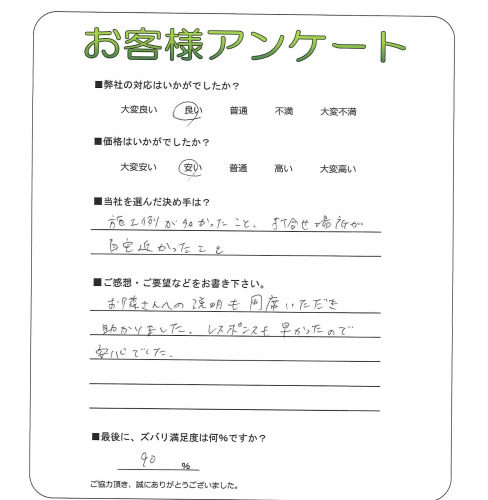 お客様アンケート
■弊社の対応はいかがでしたか？
大変良い　良い　普通　不満　大変不満
■価格はいかがでしたか？
大変安い　安い　普通　高い　大変高い
■当社を選んだ決め手は？
施工例が多かったこと、打合せ場所が
自宅近かったこと
■ご感想・ご要望などをお書き下さい。
お隣さんへの説明も同席いただき
助かりました。レスポンスも早かったので
安心でした。
■最後に、ズバリ満足度は何%ですか？
90 %
ご協力頂き、誠にありがとうございました。